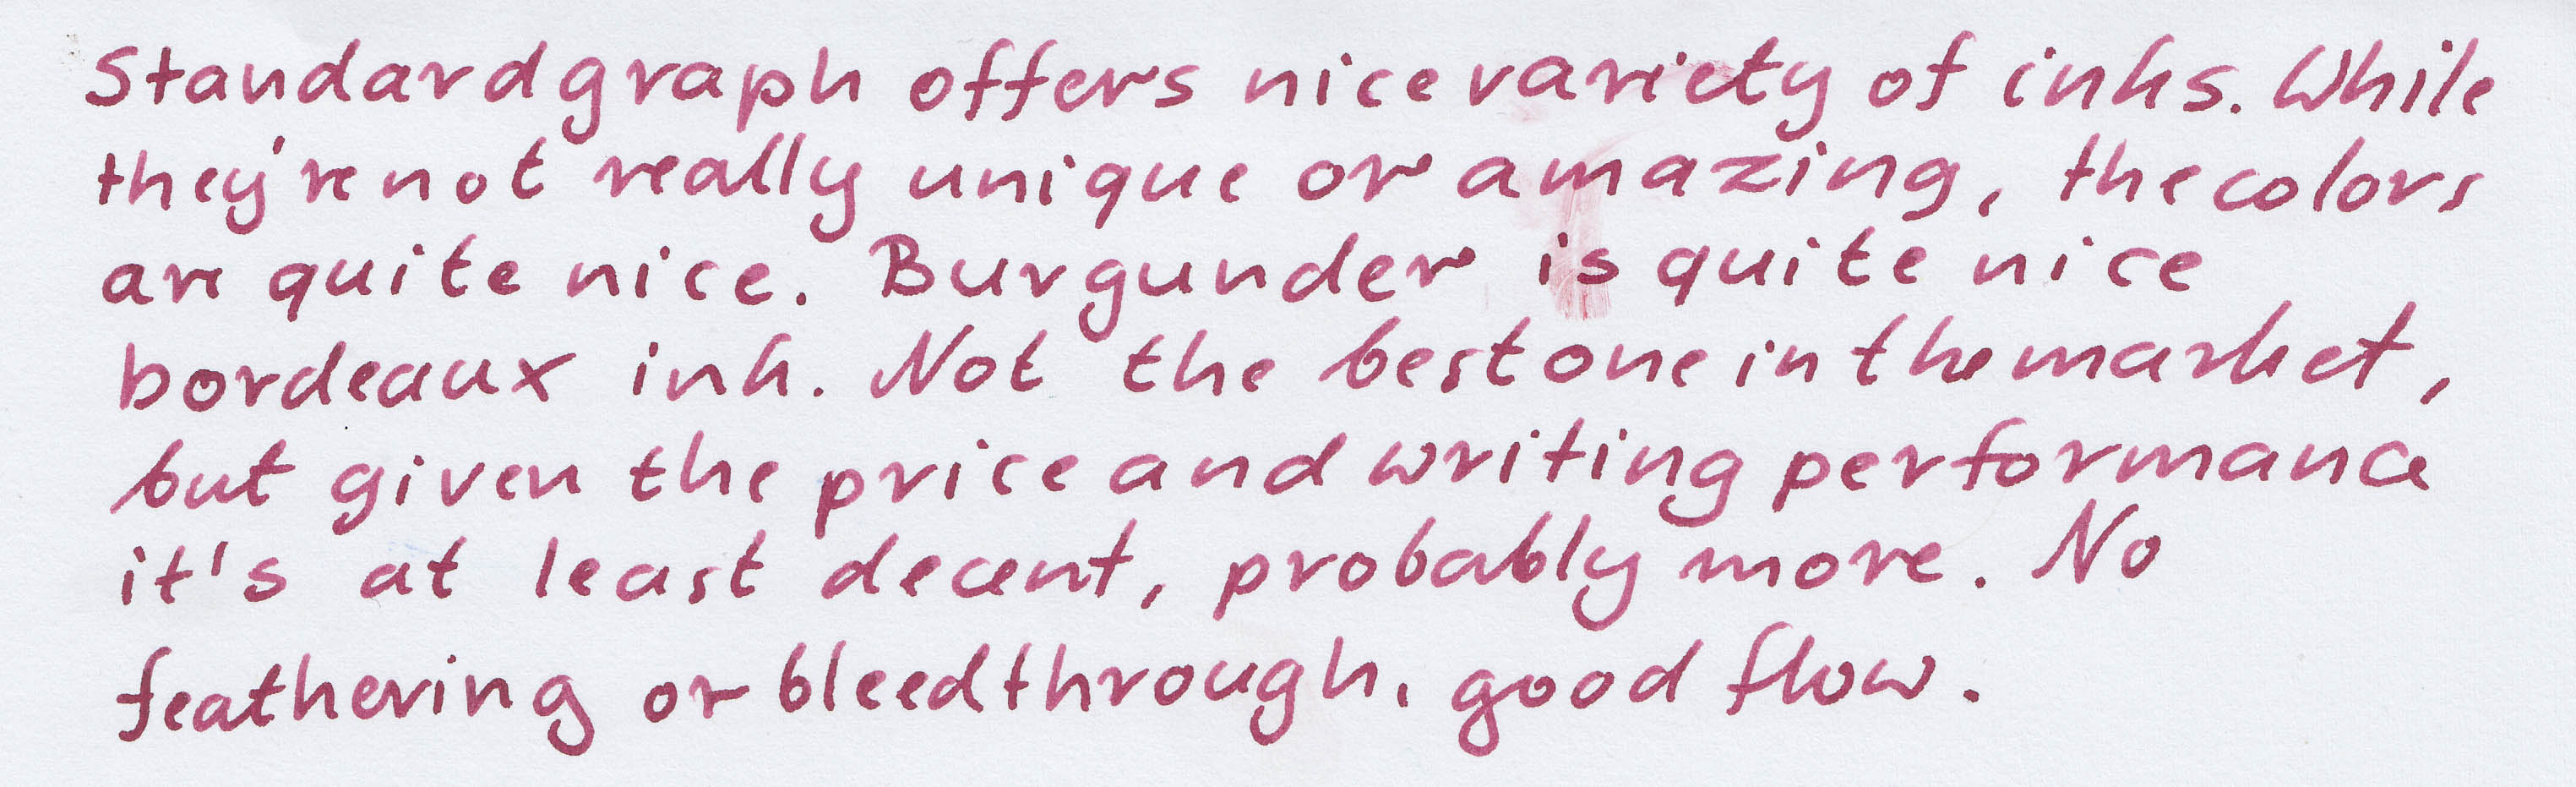 Standardgraph offers nice variety of inks. While
they're not really unique or amazing, the colors
are quite nice. Burgunder is quite nice
bordeaux ink. Not the best one in the market,
but given the price and writing performance
it's at least decent, probably more. No
feathering or bleedthrough, good flow.